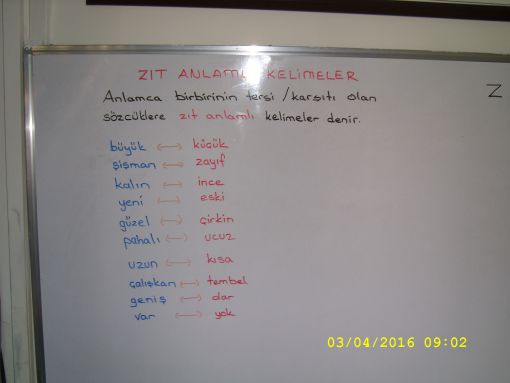 ZIT ANLAMLI KELİMELER
Anlamca birbirinin tersi / karşıtı olan
sözcüklere zıt anlamlı kelimeler denir.
büyük ↔ küçük
şişman ↔ zayıf
kalın ↔ ince
yeni ↔ eski
güzel ↔ çirkin
pahalı ↔ ucuz
uzun ↔ kısa
çalışkan ↔ tembel
geniş ↔ dar
var ↔ yok
Z
03/04/2016 09:02